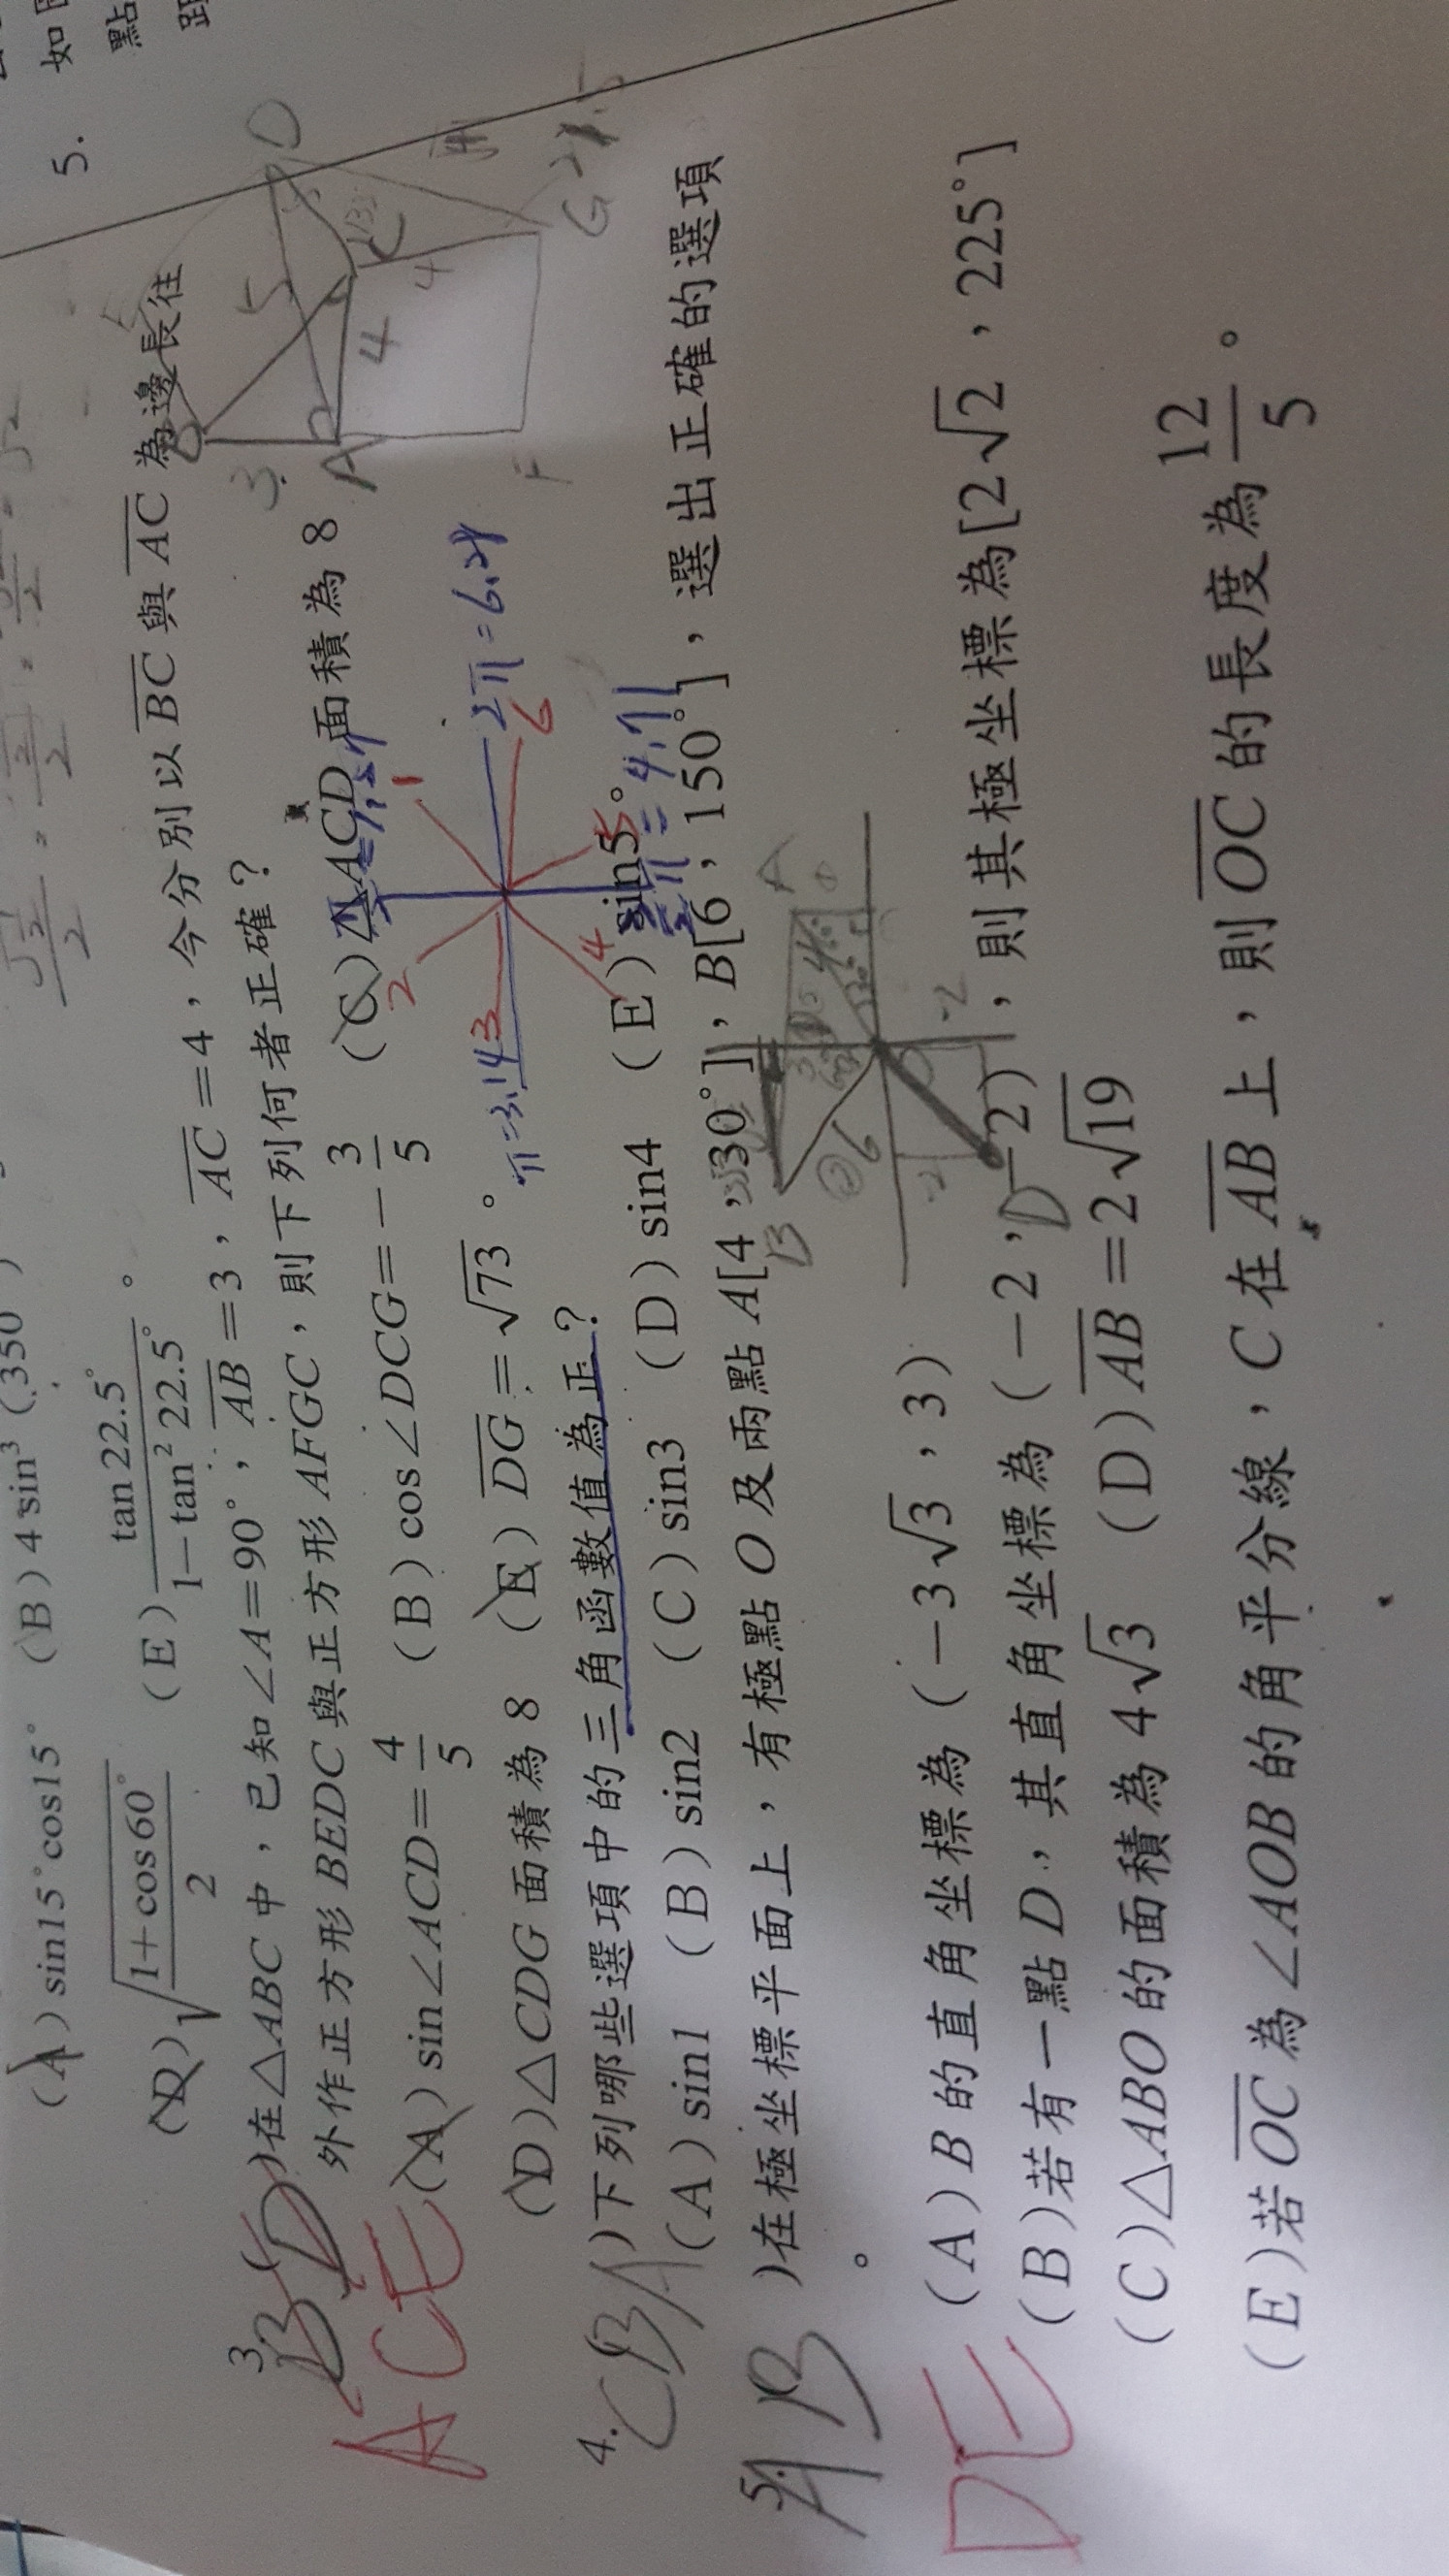 (A) sin15°cos15° (B) 4 sin³ (350
(D) √(1+cos60°/2) (E) tan22.5°/1−tan²22.5° 。
3 )在△ABC中，已知∠A=90°，AB=3，AC=4，今分別以BC與AC為邊長往
外作正方形BEDC與正方形AFGC，則下列何者正確？
(A) sin∠ACD=4/5 (B) cos∠DCG=−3/5 (C)△ACD面積為8
(D)△CDG面積為8 (E) DG=√73 。
BD
ACE
B
3
A
4
5
D
C
4
G
F
4. )下列哪些選項中的三角函數值為正？
(A) sin1 (B) sin2 (C) sin3 (D) sin4 (E) sin5。
CBA
π=3.14
2π=6.28
=4.71
1
2
3
4
5
6
5. )在極坐標平面上，有極點O及兩點A[4，30°]，B[6，150°]，選出正確的選項
。
(A) B的直角坐標為（−3√3，3）
(B)若有一點D，其直角坐標為（−2，−2），則其極坐標為[2√2，225°]
(C)△ABO的面積為4√3 (D) AB=2√19
(E)若OC為∠AOB的角平分線，C在AB上，則OC的長度為12/5。
AB
DE
B
6
A
4
D
-2
-2
5. 如
點
距